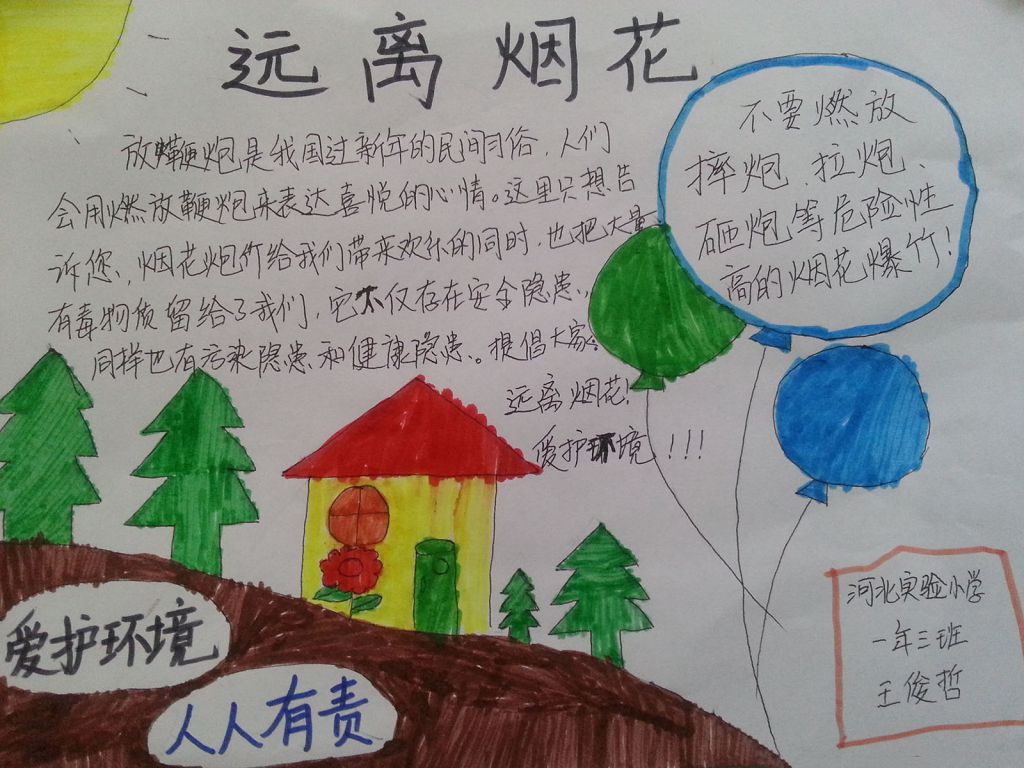 远离烟花
放鞭炮是我国过新年的民间习俗，人们
会用燃放鞭炮来表达喜悦的心情。这里只想告
诉您、烟花炮竹给我们带来欢乐的同时，也把大量
有毒物质留给了我们，它不仅存在安全隐患、
同样也有污染隐患、和健康隐患、。提倡大家：
远离烟花！
爱护环境！！！
不要燃放
摔炮、拉炮、
砸炮等危险性
高的烟花爆竹！
爱护环境
人人有责
河北实验小学
一年三班
王俊哲